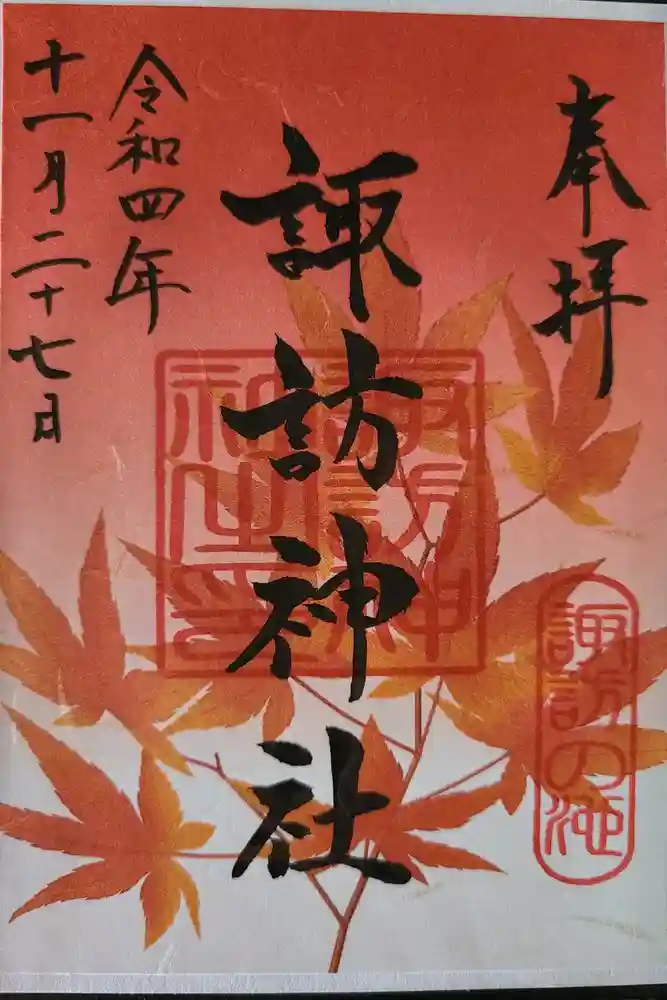 奉拝
諏訪の池
諏訪神社
諏訪神
社之印
令和四年
十一月二十七日